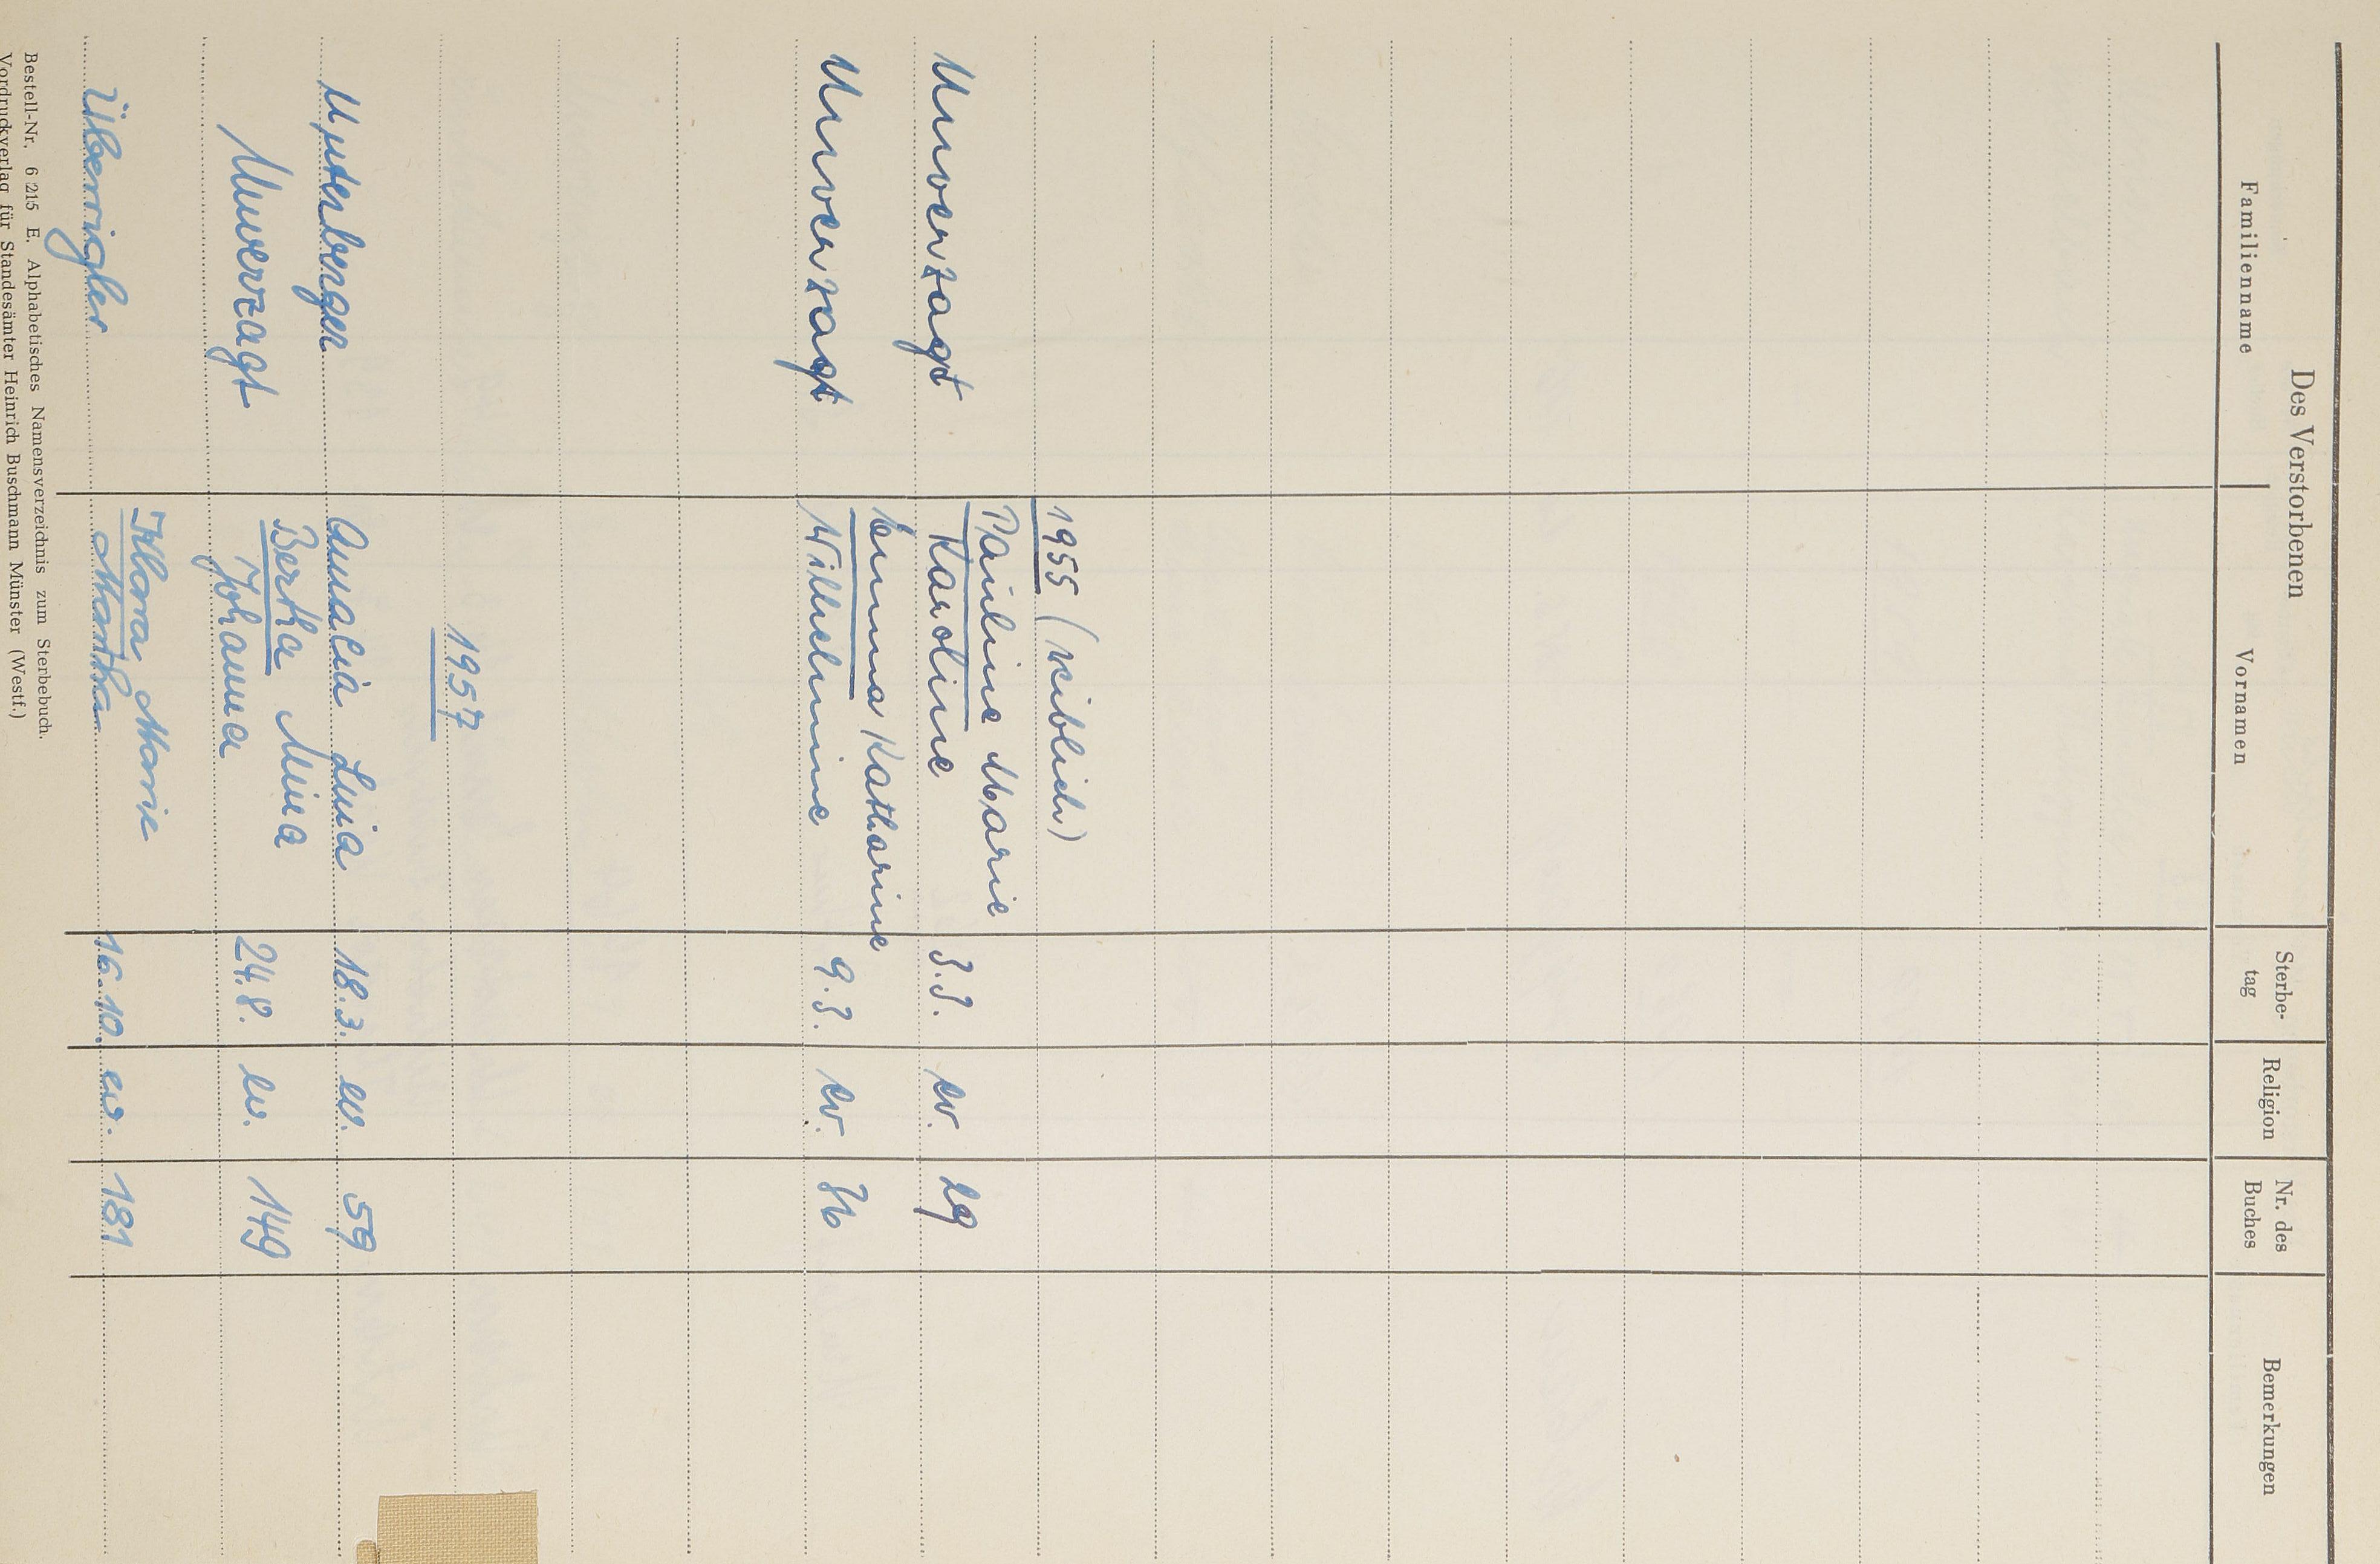 Des Verstorbenen
Familienname Vornamen Sterbe-tag Religion Nr. des Buches Bemerkungen
1955 (weiblich)
Pauline Marie
Unverzagt Karoline 3.3. ev. 29
Emma Katharine
Unverzagt Wilhelmine 9.3. ev. 36
1957
Amalia Luia 18.3. ev. 59
Bertha Mina
Unverzagt Johanna 24.8. ev. 149
Klara Marie
Überrigler Martha 16.10. ev. 181
Bestell-Nr. 6 215 E. Alphabetisches Namensverzeichnis zum Sterbebuch.
Vordruckverlag für Standesämter Heinrich Buschmann Münster (Westf.)